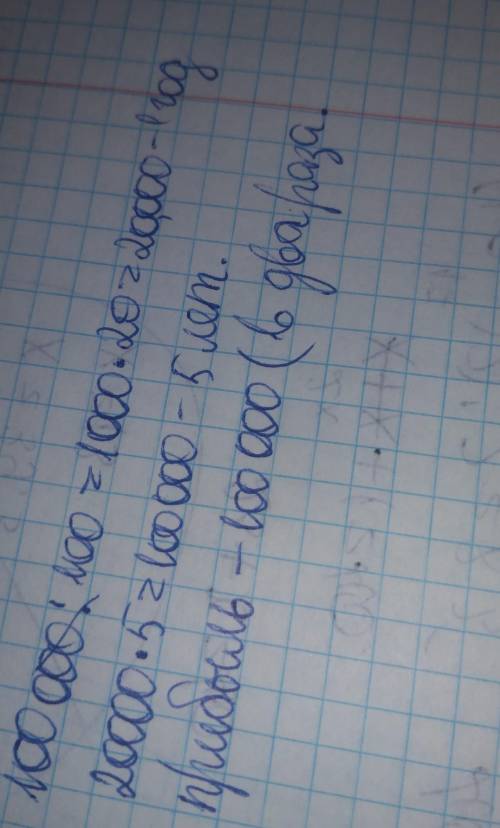 100 000 : 100 = 1000 · 20 = 20000 - 1 год
20000 · 5 = 100 000 - 5 лет.
прибыль - 100 000 ( в два раза.